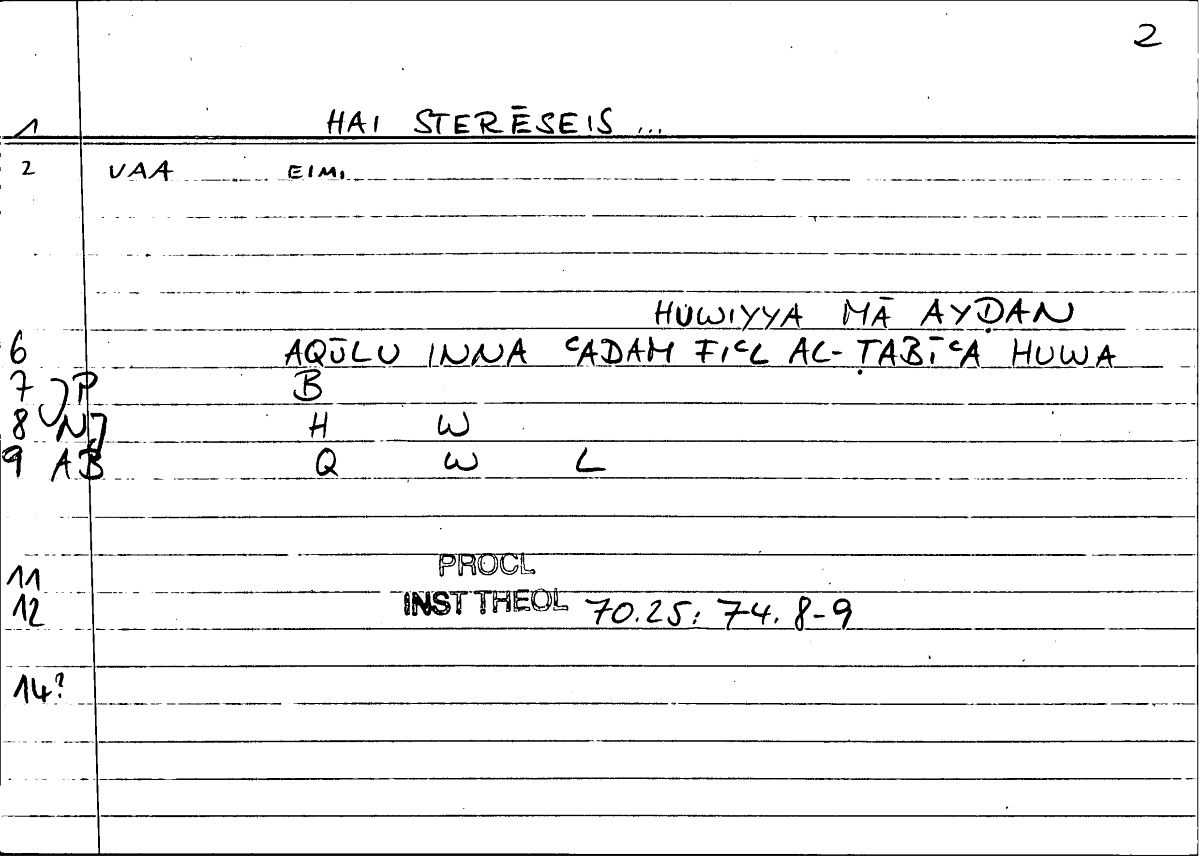 2
1 HAI STERĒSEIS ...
2 VAA EIMI
HUWIYYA MĀ AYḌAN
6 AQŪLU INNA ʿADAM FIʿL AL-ṬABĪʿA HUWA
7 P B
8 N H W
9 AB Q W L
11 PROCL
12 INST THEOL 70.25; 74.8-9
14?